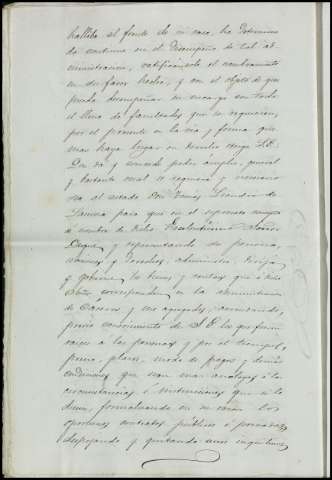 hallaba al frente de su casa, ha determina
do continue en el desempeño de tal ad
ministracion, ratificandole el nombramiento
en su favor hecho, y con el objeto de que
pueda desempeñar su encargo con todo
el lleno de facultades que se requieren,
por el presente en la via y forma que
mas haya lugar en derecho otorga S.E.
Que da y concede poder amplio, general
y bastante cual se requiera y necesario
sea al citado Don Tomás Leandro de
para que en el espresado
a nombre de dicho Excelentisimo Señor
Duque y representando su persona,
acciones y derechos administre, rija
y gobierne los bienes y rentas que a dicho
Señor corresponden en la administracion
de y sus agregados, arrendando,
previo conocimiento de S.E. los que fueren
raices a las personas y por el tiempo,
precio, plazos, modo de pagos y demás
condiciones que sean mas analogas á las
circunstancias é instrucciones que se le
dieren, formalizando en su razon los
oportunos contratos públicos ó privados,
despojando y quitando unos inquilinos